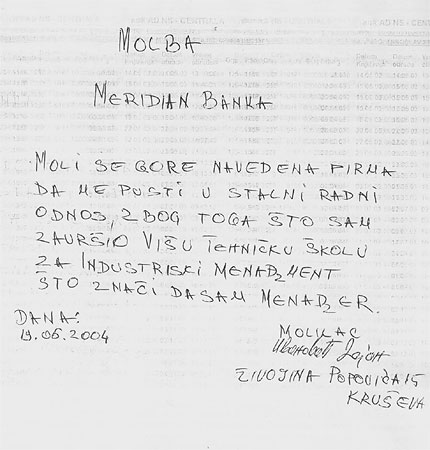 MOLBA
MERIDIAN BANKA
MOLI SE GORE NAVEDENA FIRMA
DA ME PUSTI U STALNI RADNI
ODNOS, ZBOG TOGA ŠTO SAM
ZAVRŠIO VIŠU TEHNIČKU ŠKOLU
ZA INDUSTRISKI MENADZMENT
ŠTO ZNAČI DASAM MENADZER.
DANA:
19.06.2004
MOLILAC
ŽIVOJINA POPOVIĆA 15
KRUŠEVA